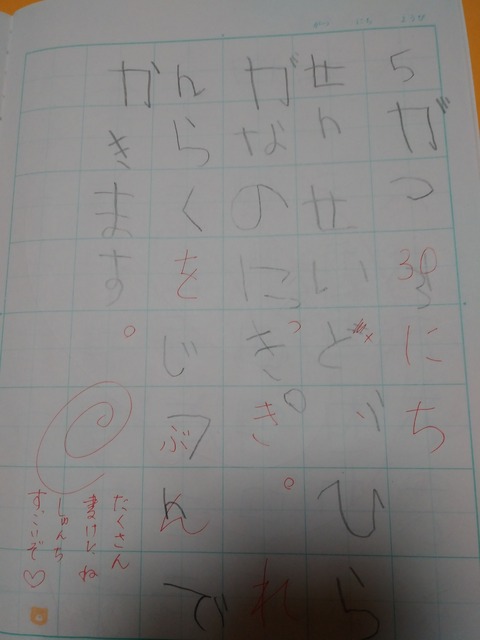 5がつ30にち
せんせいど ひら
がなのにっき。れ
んらくをじぶんで
がきます。
たくさん
書けたね
すごいぞ♡